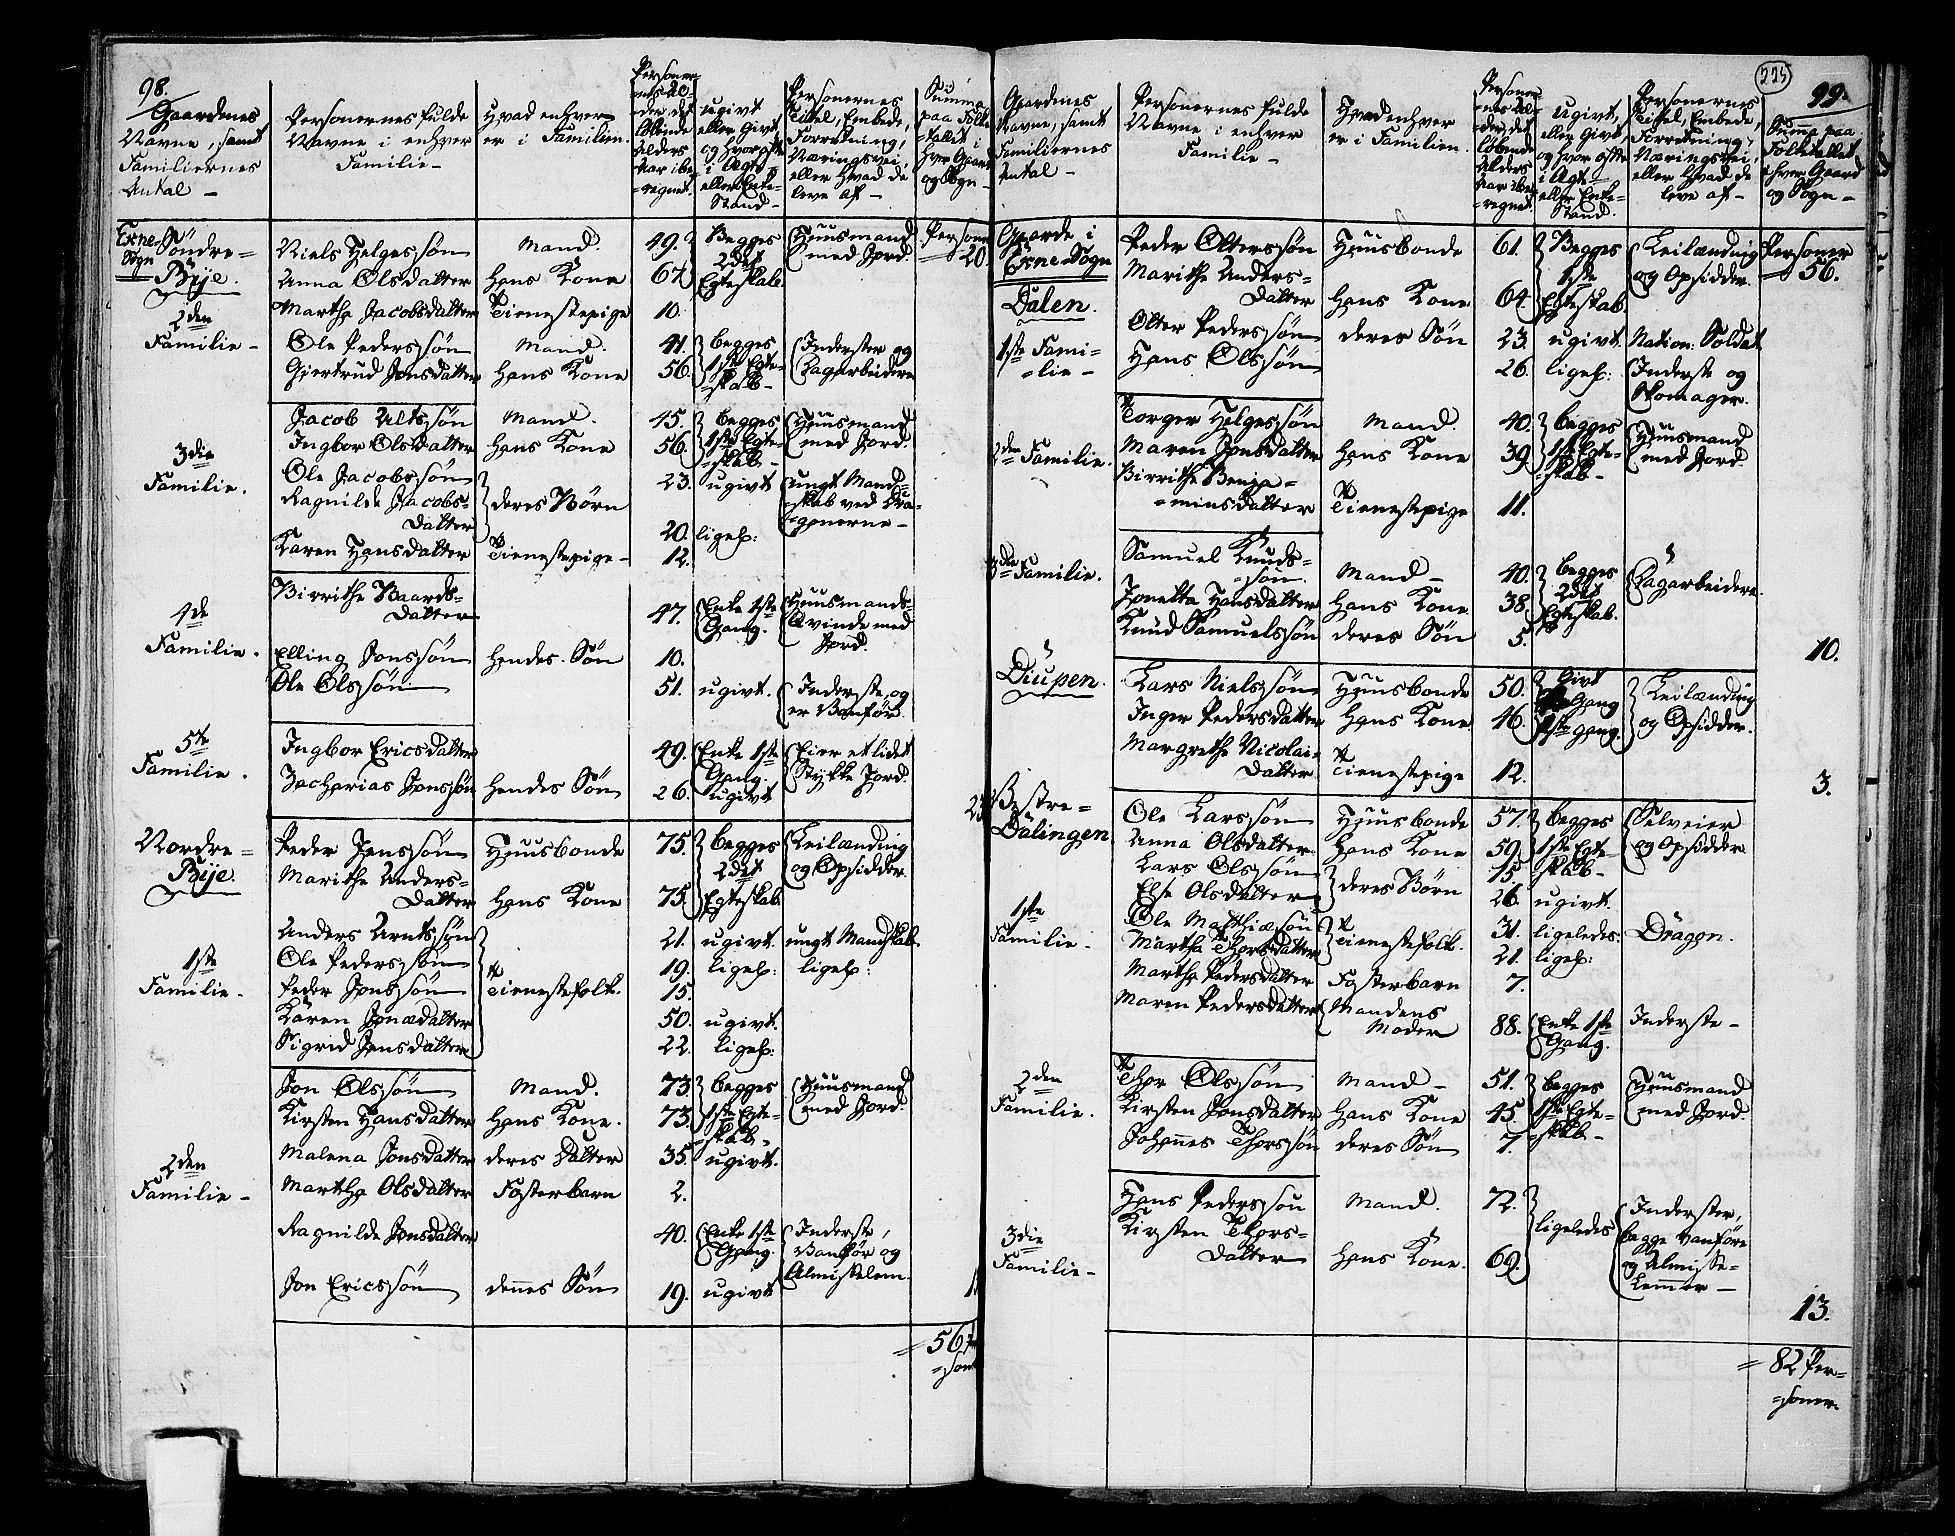 98.
Gaardenes Navne, samt Familiernes Antal –
Personernes fulde Navne i enhver Familie –
Hvad enhver er i Familien.
Personernes Alder, det løbende Alders Aar iberegnet.
ugivt eller givt, og hvor ofte i Ægte- eller Enke-Stand –
Personernes Titel, Embede, Forretning, Næringsvei, eller hvad de leve af –
Summa paa Folketallet i hver Gaard og Sogn –
Exne Sogn Søndre= Bÿe. Niels Helgessøn Mand. 49. Begges 2det Egteskab. Huusmand med Jord. Person 20.
Anna Olsdatter hans Kone 67.
Martha Jacobsdatter Tienestepige 10.
2den Familie – Ole Pederssøn Mand. 41. begges 1ste Egteskab – Inderster og Dagarbeidere
Giertrud Jonsdatter hans Kone 56.
3die Familie. Jacob Altssøn Mand. 45. begges 1ste Egteskab – Huusmand med Jord.
Ingbor Olsdatter hans Kone 56.
Ole Jacobssøn deres Børn 23. ugivt ungt Mandskab ved Dragonerne –
Ragnilde Jacobsdatter 20. liges:
Karen Hansdatter Tienestepige – 12.
4de Familie. Birrithe Baardsdatter 47. Enke 1ste Gang. Huusmands Qvinde med Jord.
Elling Jonssøn hendes Søn 10.
Ole Olssøn 51. ugivt. Inderste, og er Vanför.
5te Familie. Ingbor Ericsdatter 49. Enke 1ste Gang. Eier et lidet Stykke Jord.
Zacharias Jonssøn hendes Søn 26. ugivt 23
Nordre= Bÿe. Peder Jenssøn Huusbonde 75. begges 2det Egteskab Leilænding og Opsidder.
Marithe Andersdatter hans Kone 75.
1ste Familie – Anders Arntssøn Tienestefolk. 21. ugivt. ungt Mandskab.
Ole Pederssøn 19. liges: liges:
Peder Jonssøn 15.
Karen Jonædatter 50. ugivt.
Sigrid Jensdatter 22. liges:
2den Familie – Jon Olssøn Mand. 73. begges 1ste Egteskab – Huusmand med Jord.
Kirsten Hansdatter hans Kone. 73.
Malena Jonsdatter deres Datter 35. ugivt.
Martha Olsdatter Fosterbarn 2.
Ragnilde Jonsdatter 40. Enke 1ste Gang. Inderste, Vanför og Almisselem.
Jon Ericssøn dennes Søn 19. ugivt 1
= 56 Per=
=son
225
99.
Gaardenes Navne, samt Familiernes Antal –
Personernes fulde Navne i enhver Familie –
Hvad enhver er i Familien.
Personernes Alder, det løbende Alders Aar iberegnet.
ugivt, eller givt, og hvor ofte i Ægte- eller Enke-Stand.
Personernes Titel, Embede, Forretning, Næringsvei, eller hvad de leve af –
Summa paa Folketallet i hver Gaard og Sogn –
Gaarde i Exne Sogn Peder Olterssøn Huusbonde 61. Begges 1ste Egteskab. Leilænding og Opsidder. Personer 56.
Dalen. Marithe Andersdatter hans Kone 64
1ste Familie – Olter Pederssøn deres Søn 23. ugivt. Nation. Soldat
Hans Olssøn 26. liges: Inderste og Skomager.
2den Familie. Torger Helgessøn Mand. 40. begges 1ste Egteskab – Huusmand med Jord
Maren Jonsdatter hans Kone 39.
Birrithe Benjaminsdatter Tienestepige 11.
3die Familie. Samuel Knudssøn. Mand – 40. begges 2det Egteskab. Dagarbeidere.
Jonetta Hansdatter hans Kone 38.
Knud Samuelssøn deres Søn 5. 10.
Diupen. Lars Nielssøn Huusbonde 50. Givt Gang Leilænding og Opsidder.
Inger Pedersdatter hans Kone 46. 1ste gang.
Margrethe Nicolaidatter Tienestepige 12. 3.
Vestre= Dalingen Ole Larssøn Huusbonde 57. begges 1ste Egteskab – Selveier og Opsidder
Anna Olsdatter hans Kone 59.
Lars Olssøn deres Børn 15.
Else Olsdatter 26. ugivt.
1ste Familie. Ole Matthiæsøn Tienestefolk. 31. ligeledes. Dragon.
Martha Thorsdatter 21. liges:
Martha Pedersdatter Fosterbarn 7.
Maren Pedersdatter Mandens Moder 88. Enke 1ste Gang. Inderste –
2den Familie. Thor Olssøn Mand – 51. begges 1ste Egteskab – Huusmand med Jord
Kirsten Jonsdatter hans Kone 45.
Johannes Thorssøn deres Søn 7.
3die Familie – Hans Pederssøn Mand. 72. ligeledes Inderster, begge Vanföre og Almisse-Lemmer –
Kirsten Thorsdatter hans Kone. 69. 13.
= 82 Per=
=soner.